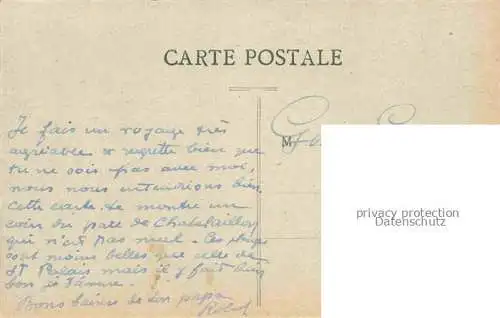 CARTE POSTALE
Je fais un voyage très
agréable & regrette bien que
tu ne sois pas avec moi,
nous nous entendrions bien
cette carte te montre un
coin du parc de Chatelaillon
qui n'est pas mal - Ces plages
sont moins belles que celle de
St Palais mais il y fait bien
bon
Bons baisers de ton papa
M
privacy protection
Datenschutz